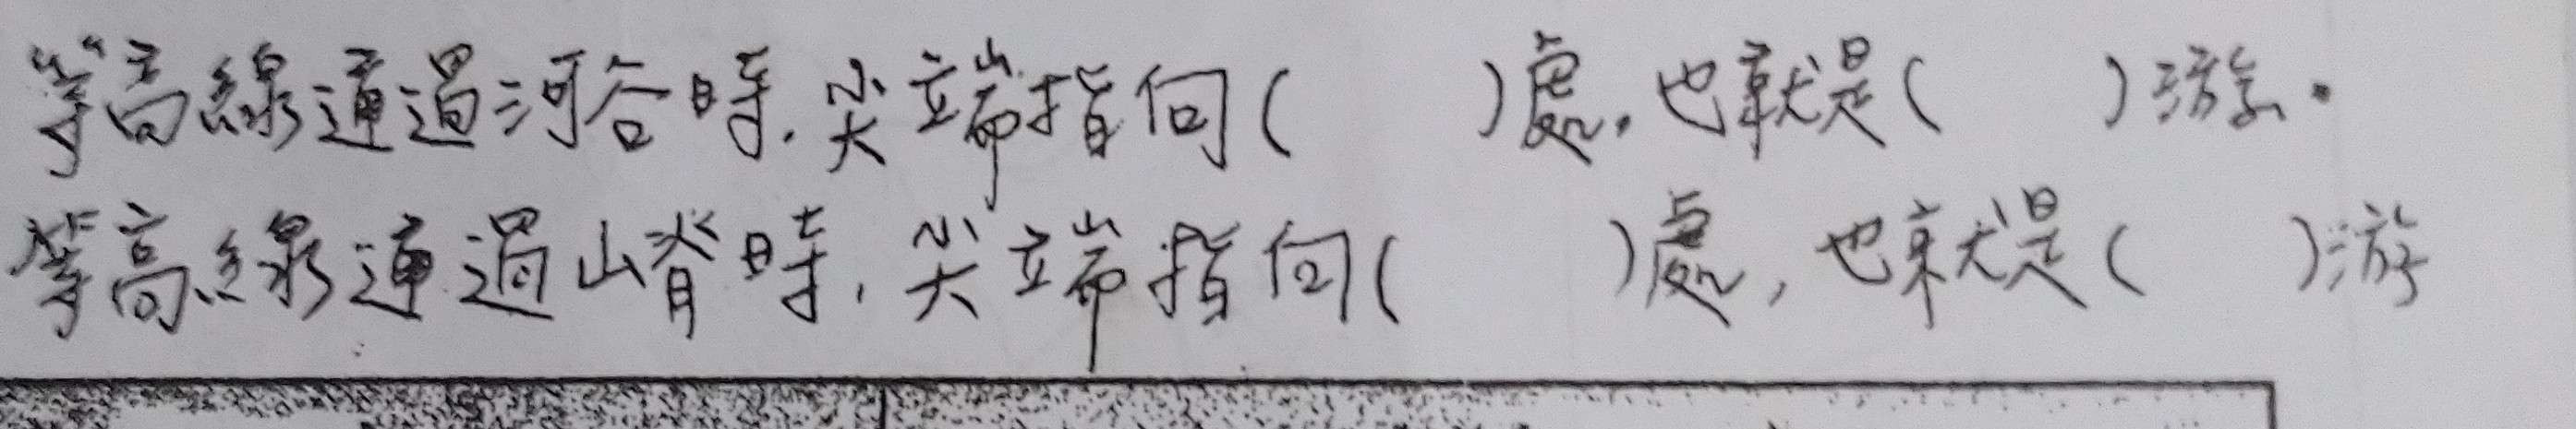 等高線通過河谷時,尖端指向(　　)處,也就是(　　)游.
等高線通過山脊時,尖端指向(　　)處,也就是(　　)游